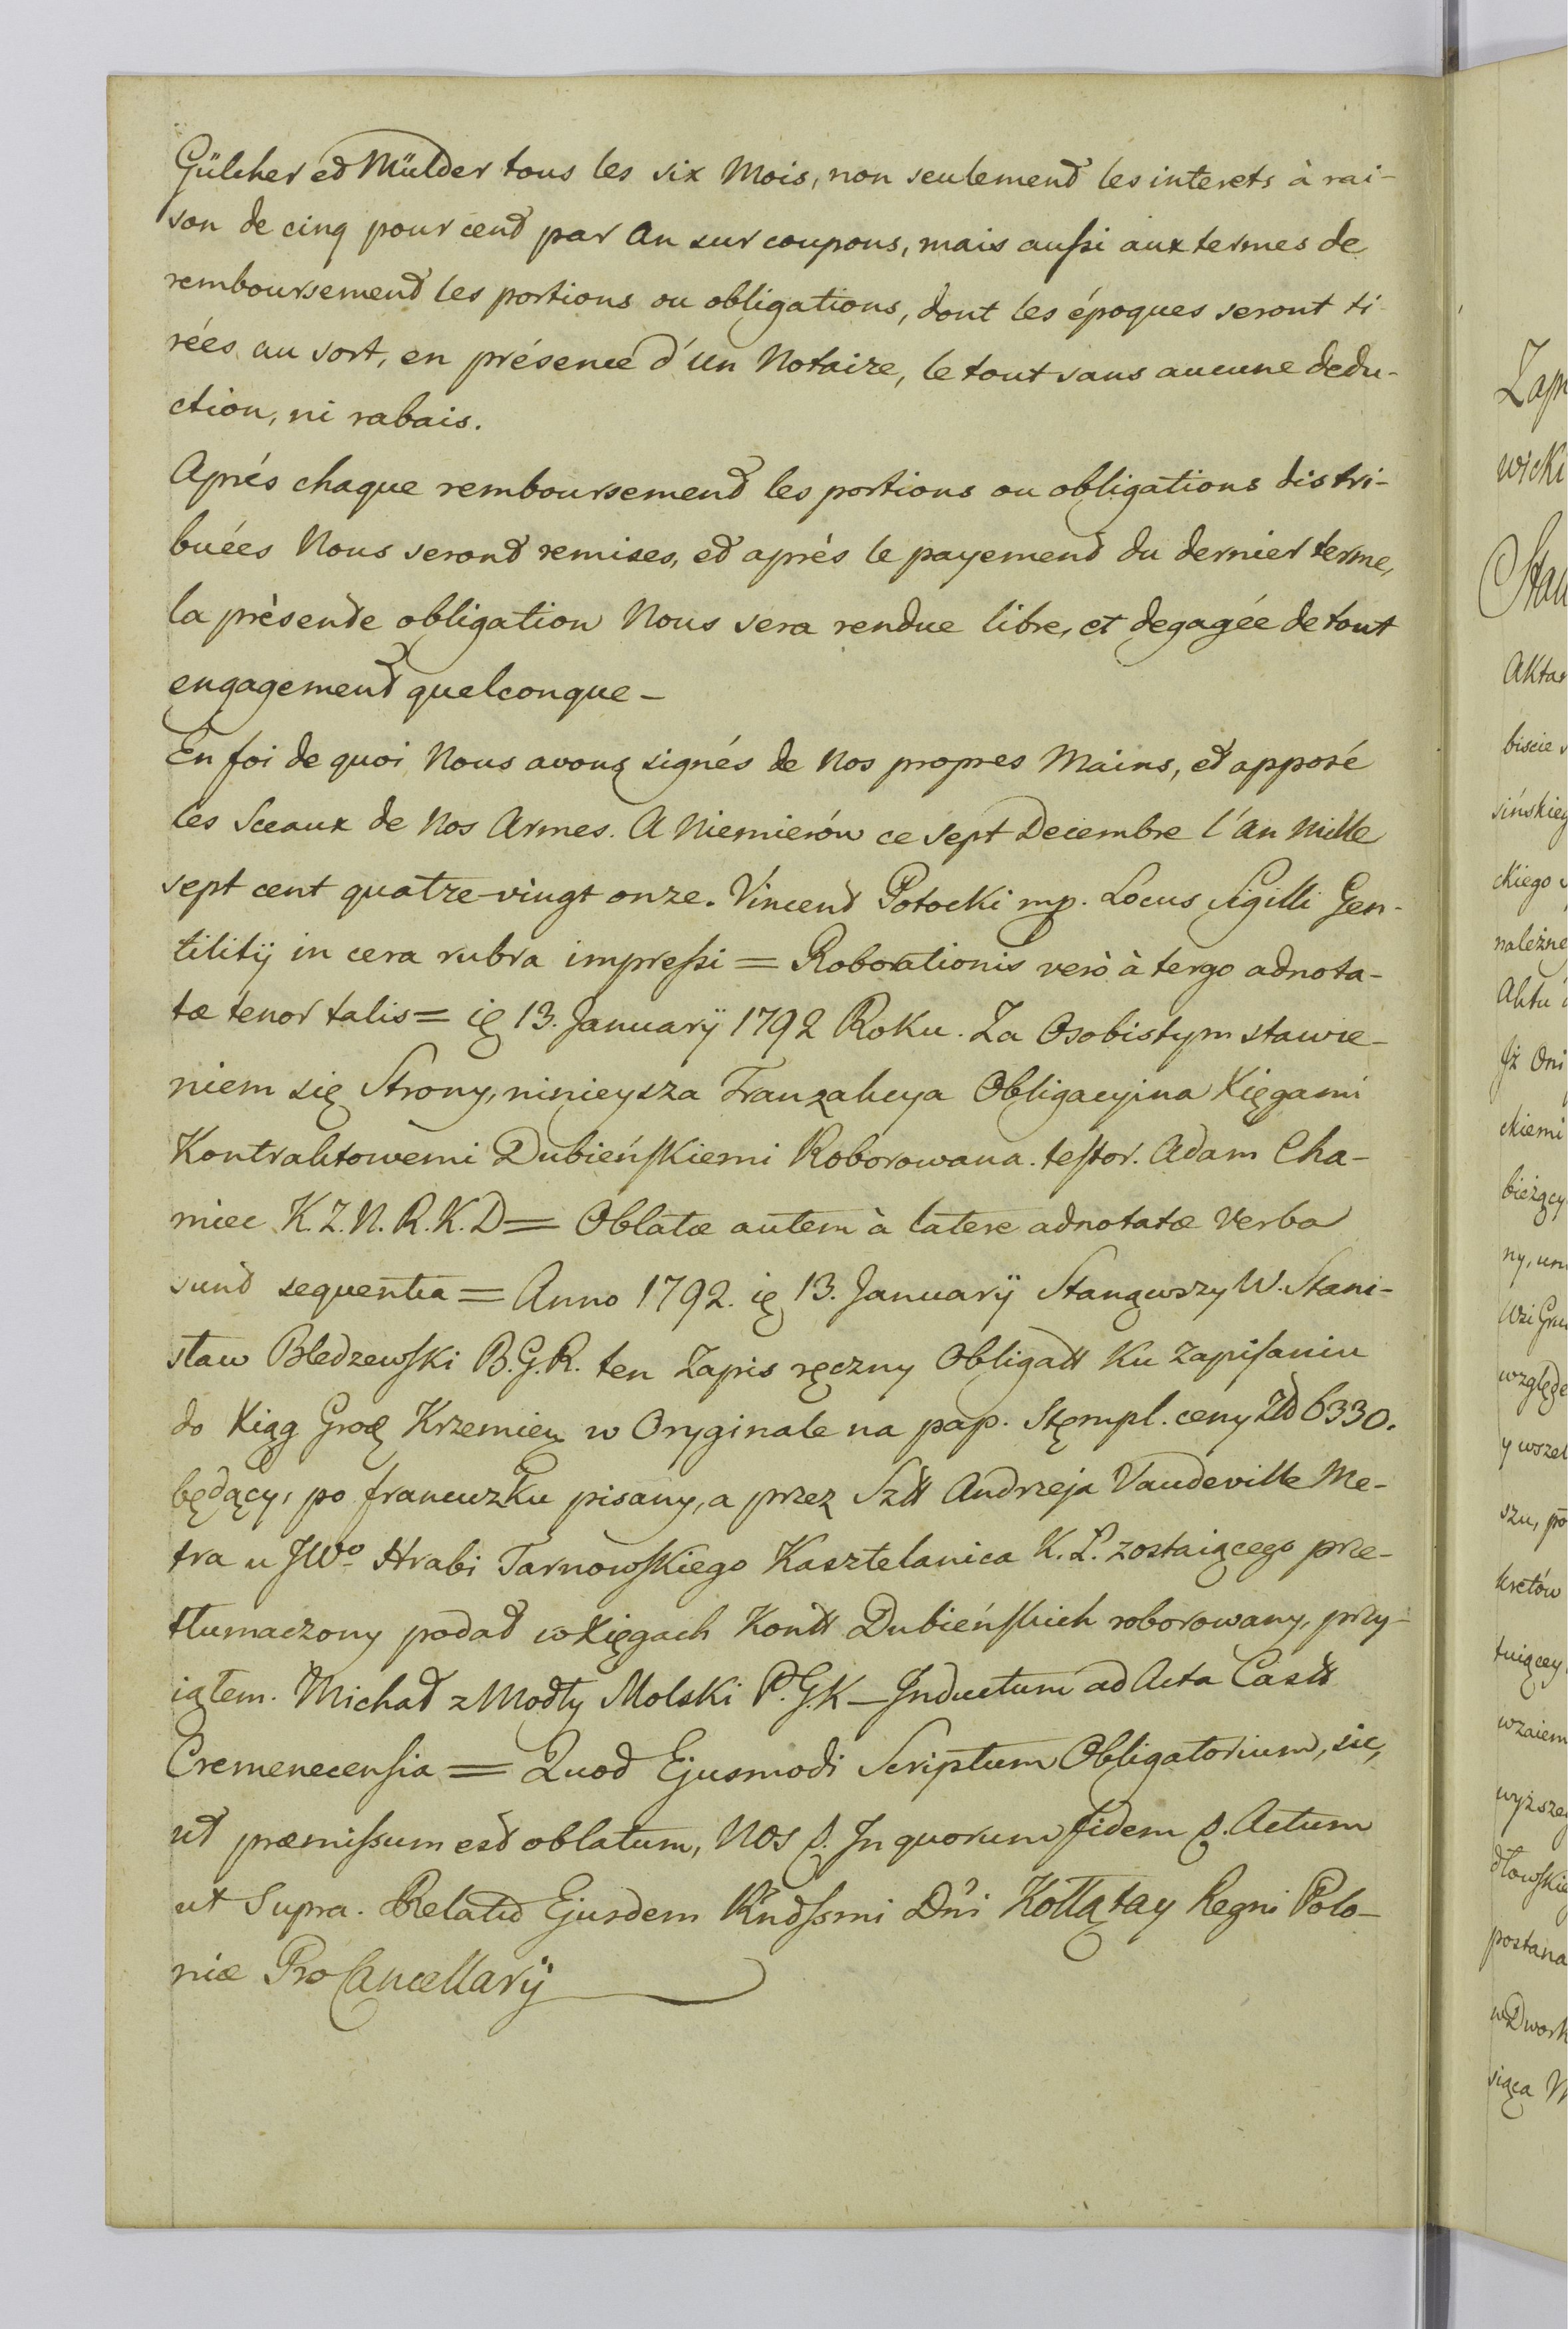 Gülcher et Mülder tous les six Mois, non seulement les interets à rai-
son de cinq pour cent par An sur coupons, mais aussi aux termes de
remboursement les portions ou obligations, dont les époques seront ti-
rées au sort, en présence d'un Notaire, le tout sans aucune dedu-
ction, ni rabais.
Aprés chaque remboursement les portions ou obligations distri-
buées Nous seront remises, et aprés le payement du dernier terme,
la prèsente obligation Nous sera rendue libre, et degagée de tout
engagement quelconque –
En foi de quoi Nous avons signés de Nos propres Mains, et apposé
les Sceaux de Nos Armes. A Niemierów ce sept Decembre l'An Mille
sept cent quatre-vingt onze. Vincent Potocki mp. Locus Sigilli Gen-
tilitij in cera rubra impressi = Roborationis verò à tergo adnota-
tæ tenor talis = ię 13. Januarij 1792 Roku. Za Osobistym stawie-
niem się Strony, ninieysza Tranzakcya Obligacyina Xięgami
Kontraktowemi Dubieńskiemi Roborowana. testor. Adam Cha-
miec K. Z. N. R. K. D = Oblatæ autem à latere adnotatæ Verba
sunt sequentia = Anno 1792. ię 13. Januarij Stanąwszy W. Stani-
sław Bledzewski B. G. R. ten Zapis ręczny Obligatt Ku Zapisaniu
do Xiąg Grod Krzemien w Oryginale na pap. Stempl. ceny Zł 6330.
będący, po francuzku pisany, a przez Sztt Andrzeja Vaudeville Me-
tra u JWo Hrabi Tarnowskiego Kasztelanica K. L. zostaiącego prze-
tłumaczony podał w Xięgach Kontt Dubieńskich roborowany, przy-
iąłem. Michał z Modły Molski P. G. K – Inductum ad Acta Castt
Cremenecensia = Quod Ejusmodi Scriptum Obligatorium, sic,
ut præmissum est oblatum, Nos p. In quorum fidem p. Actum
ut Supra. Relatio Ejusdem Rndssmi Dni Kołłątay Regni Polo-
niæ ProCancellarij
Zap
wicki
Aktas
biscie
sińskieg
ckiego
należne
Aktu
Jż Oni
ckiemi
bieżący
względe
y wszel
szu, po
kretów
tuiącey
wzaiem
wyższe
dłowskie
postana
w Dwor
siąca